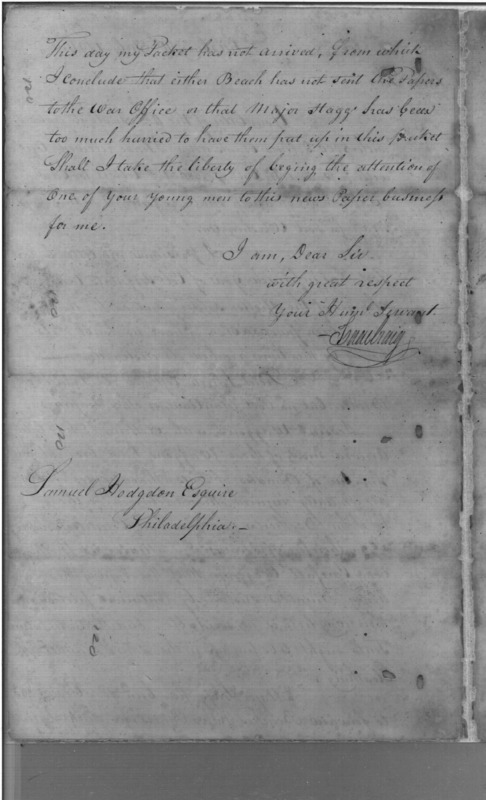 This day my Packet has not arrived, from which
I conclude that either Beach has not sent the Papers
to the War Office or that Major Stagg has been
too much hurried to have them put up in this packet
Shall I take the liberty of beging the attention of
One of Your Young men to this news Paper business
for me.
I am, Dear Sir
with great respect
Your Hum Servant.
Isaac Craig
Samuel Hodgdon Esquire
Philadelphia.-